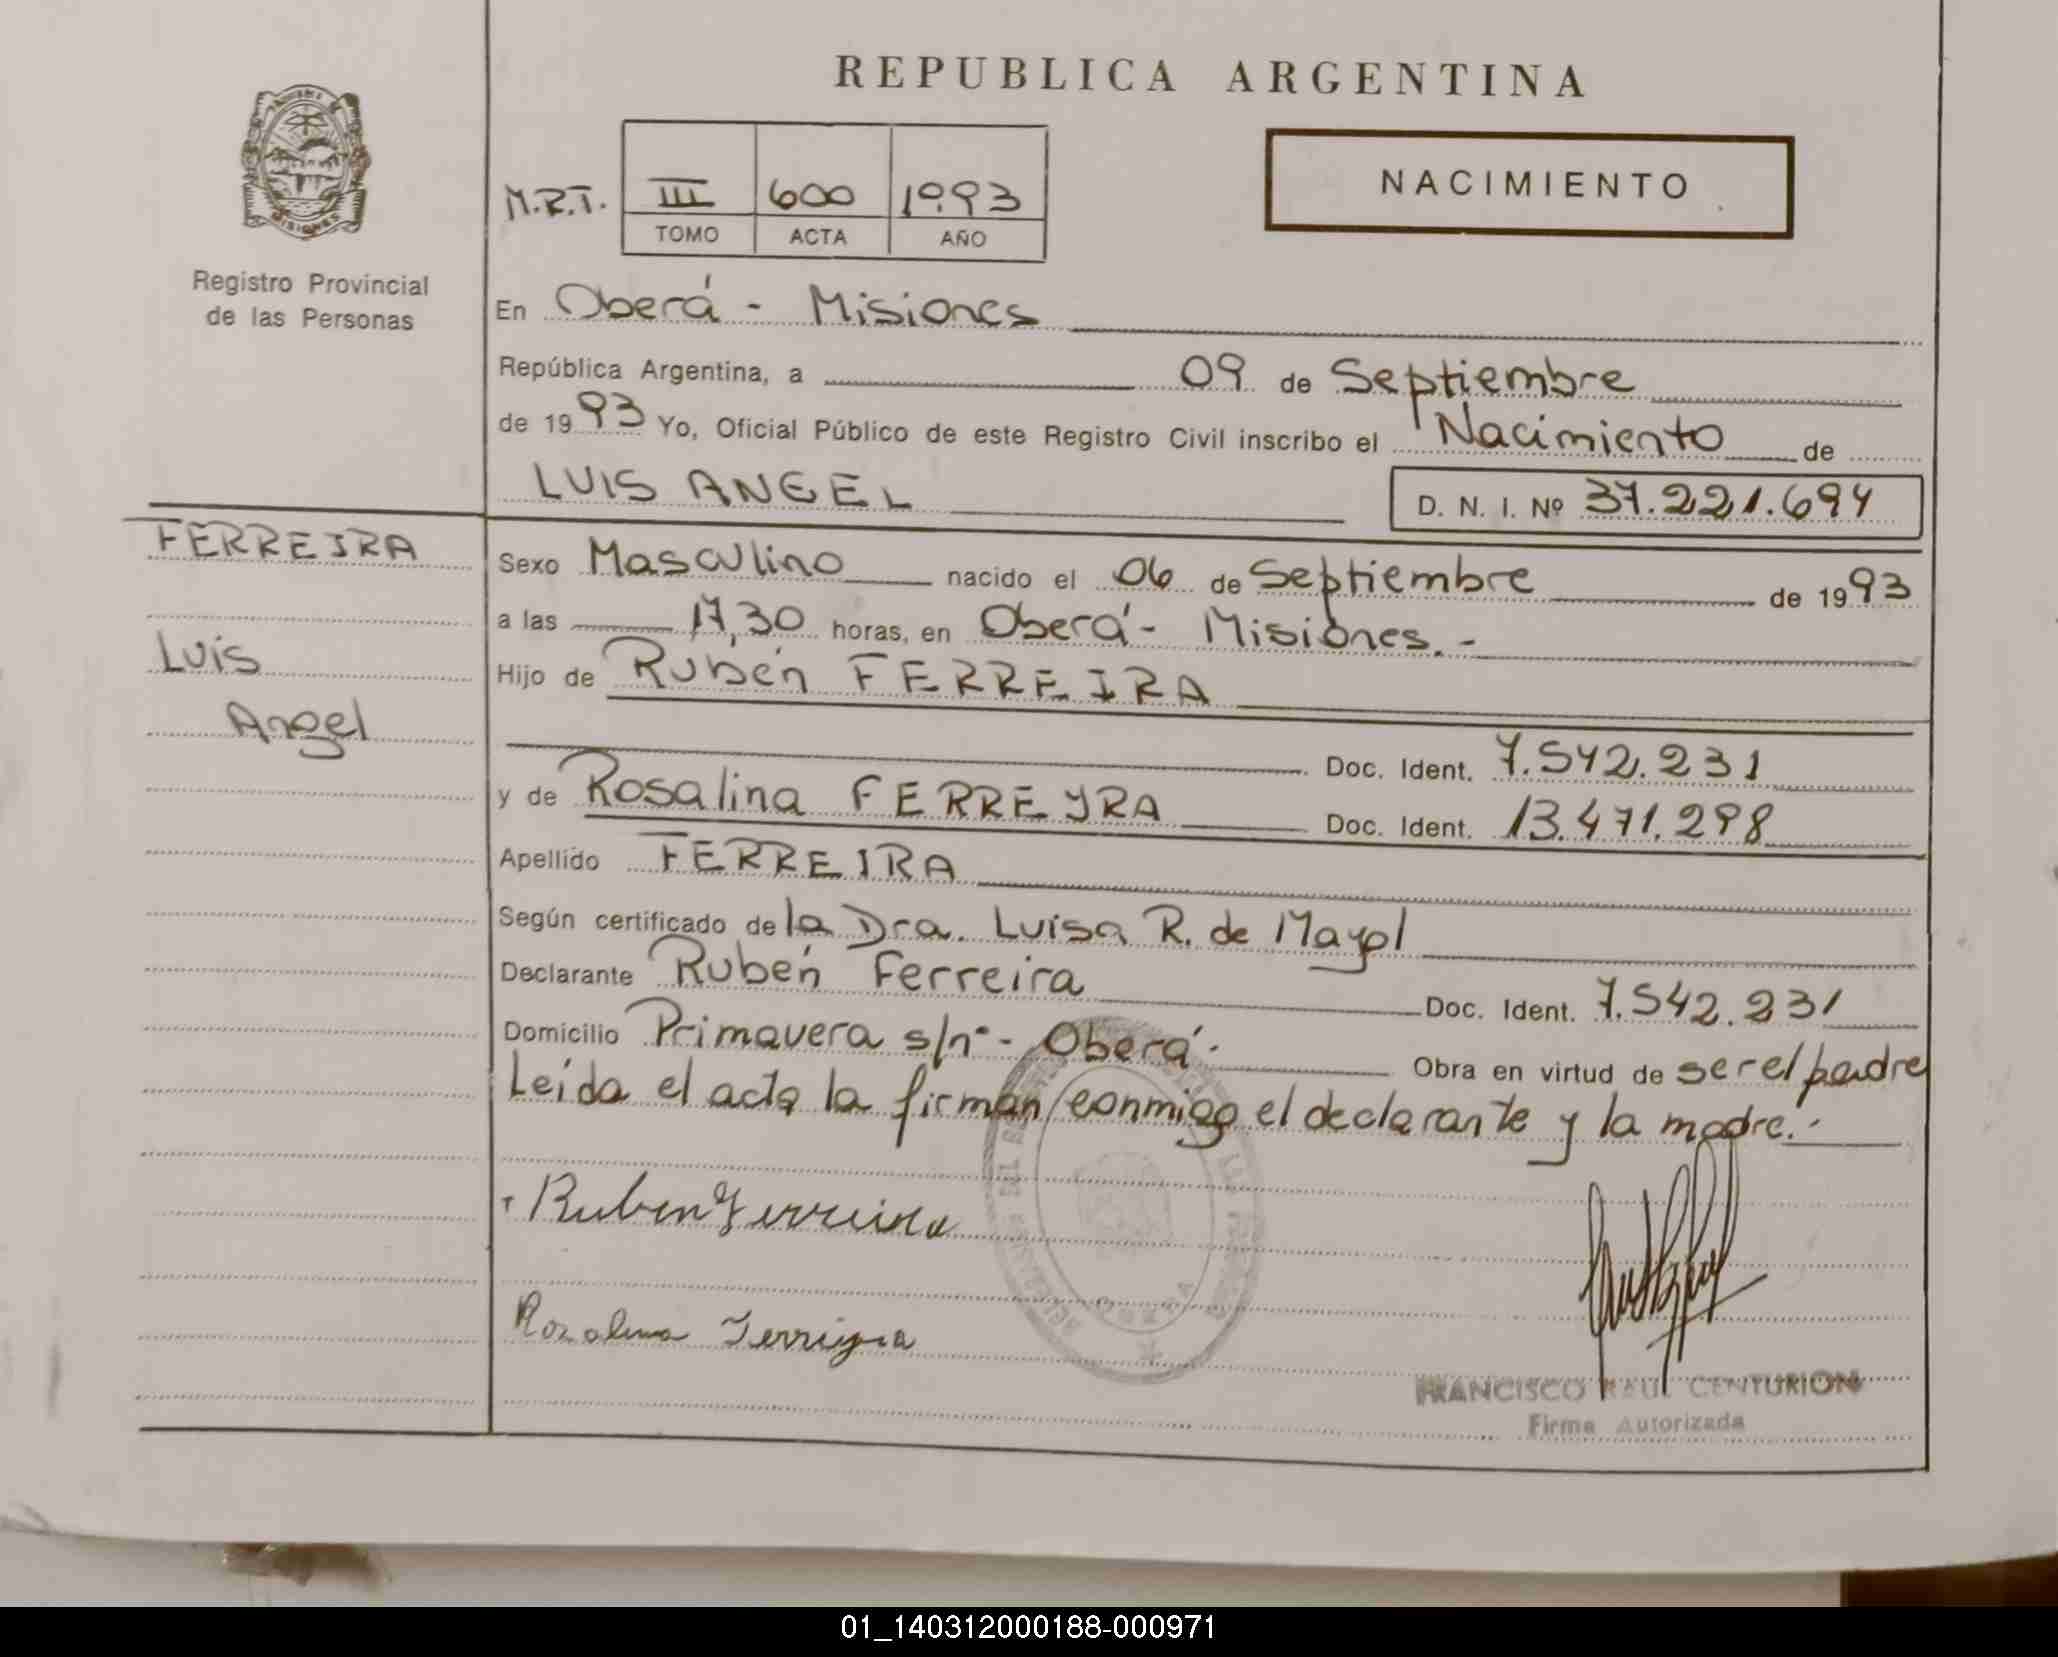 REPUBLICA ARGENTINA
MISIONES
Registro Provincial
de las Personas
M.R.T.
III 600 1993
TOMO ACTA AÑO
NACIMIENTO
En Oberá - Misiones
República Argentina, a 09 de Septiembre
de 1993 Yo, Oficial Público de este Registro Civil inscribo el Nacimiento de
LUIS ANGEL
D. N. I. Nº 37.221.694
FERREIRA
Luis
Angel
Sexo Masculino nacido el 06 de Septiembre de 1993
a las 17,30 horas, en Oberá - Misiones.-
Hijo de Rubén FERREIRA
Doc. Ident. 7.542.231
y de Rosalina FERREYRA Doc. Ident. 13.471.298
Apellido FERREIRA
Según certificado de la Dra. Luisa R. de Mayol
Declarante Rubén Ferreira Doc. Ident. 7.542.231
Domicilio Primavera s/nº - Oberá.- Obra en virtud de ser el padre
Leída el acta la firman conmigo el declarante y la madre.-
Ruben Ferreira
Rozalina Ferreyra
OBERA
FRANCISCO RAUL CENTURION
Firma Autorizada
01_140312000188-000971